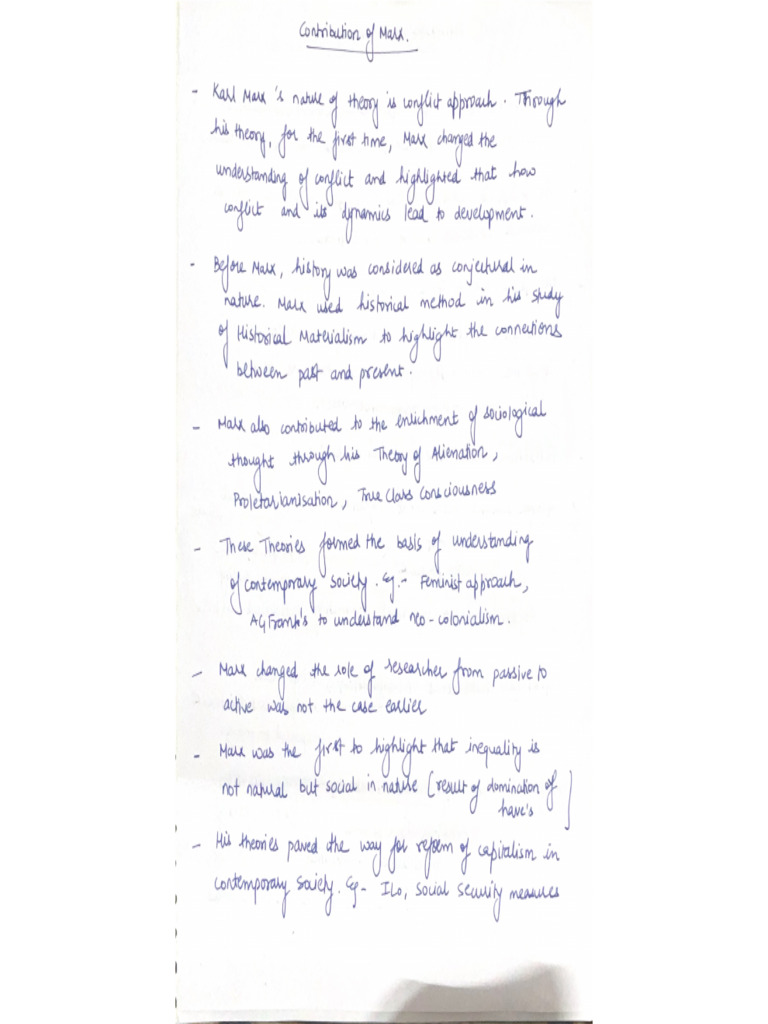 Contribution of Marx.
- Karl Marx's nature of theory is conflict approach. Through
his theory, for the first time, Marx changed the
understanding of conflict and highlighted that how
conflict and its dynamics lead to development.
- Before Marx, history was considered as conjectural in
nature. Marx used historical method in his study
of Historical Materialism to highlight the connections
between past and present.
- Marx also contributed to the enrichment of sociological
thought through his Theory of Alienation,
Proletarianisation, True Class Consciousness
- These Theories formed the basis of understanding
of contemporary society. Eg.- Feminist approach,
AG Frank's to understand neo-colonialism.
- Marx changed the role of researcher from passive to
active was not the case earlier
- Marx was the first to highlight that inequality is
not natural but social in nature [result of domination of
have's]
- His theories paved the way for reform of capitalism in
contemporary society. Eg- ILO, Social Security measures